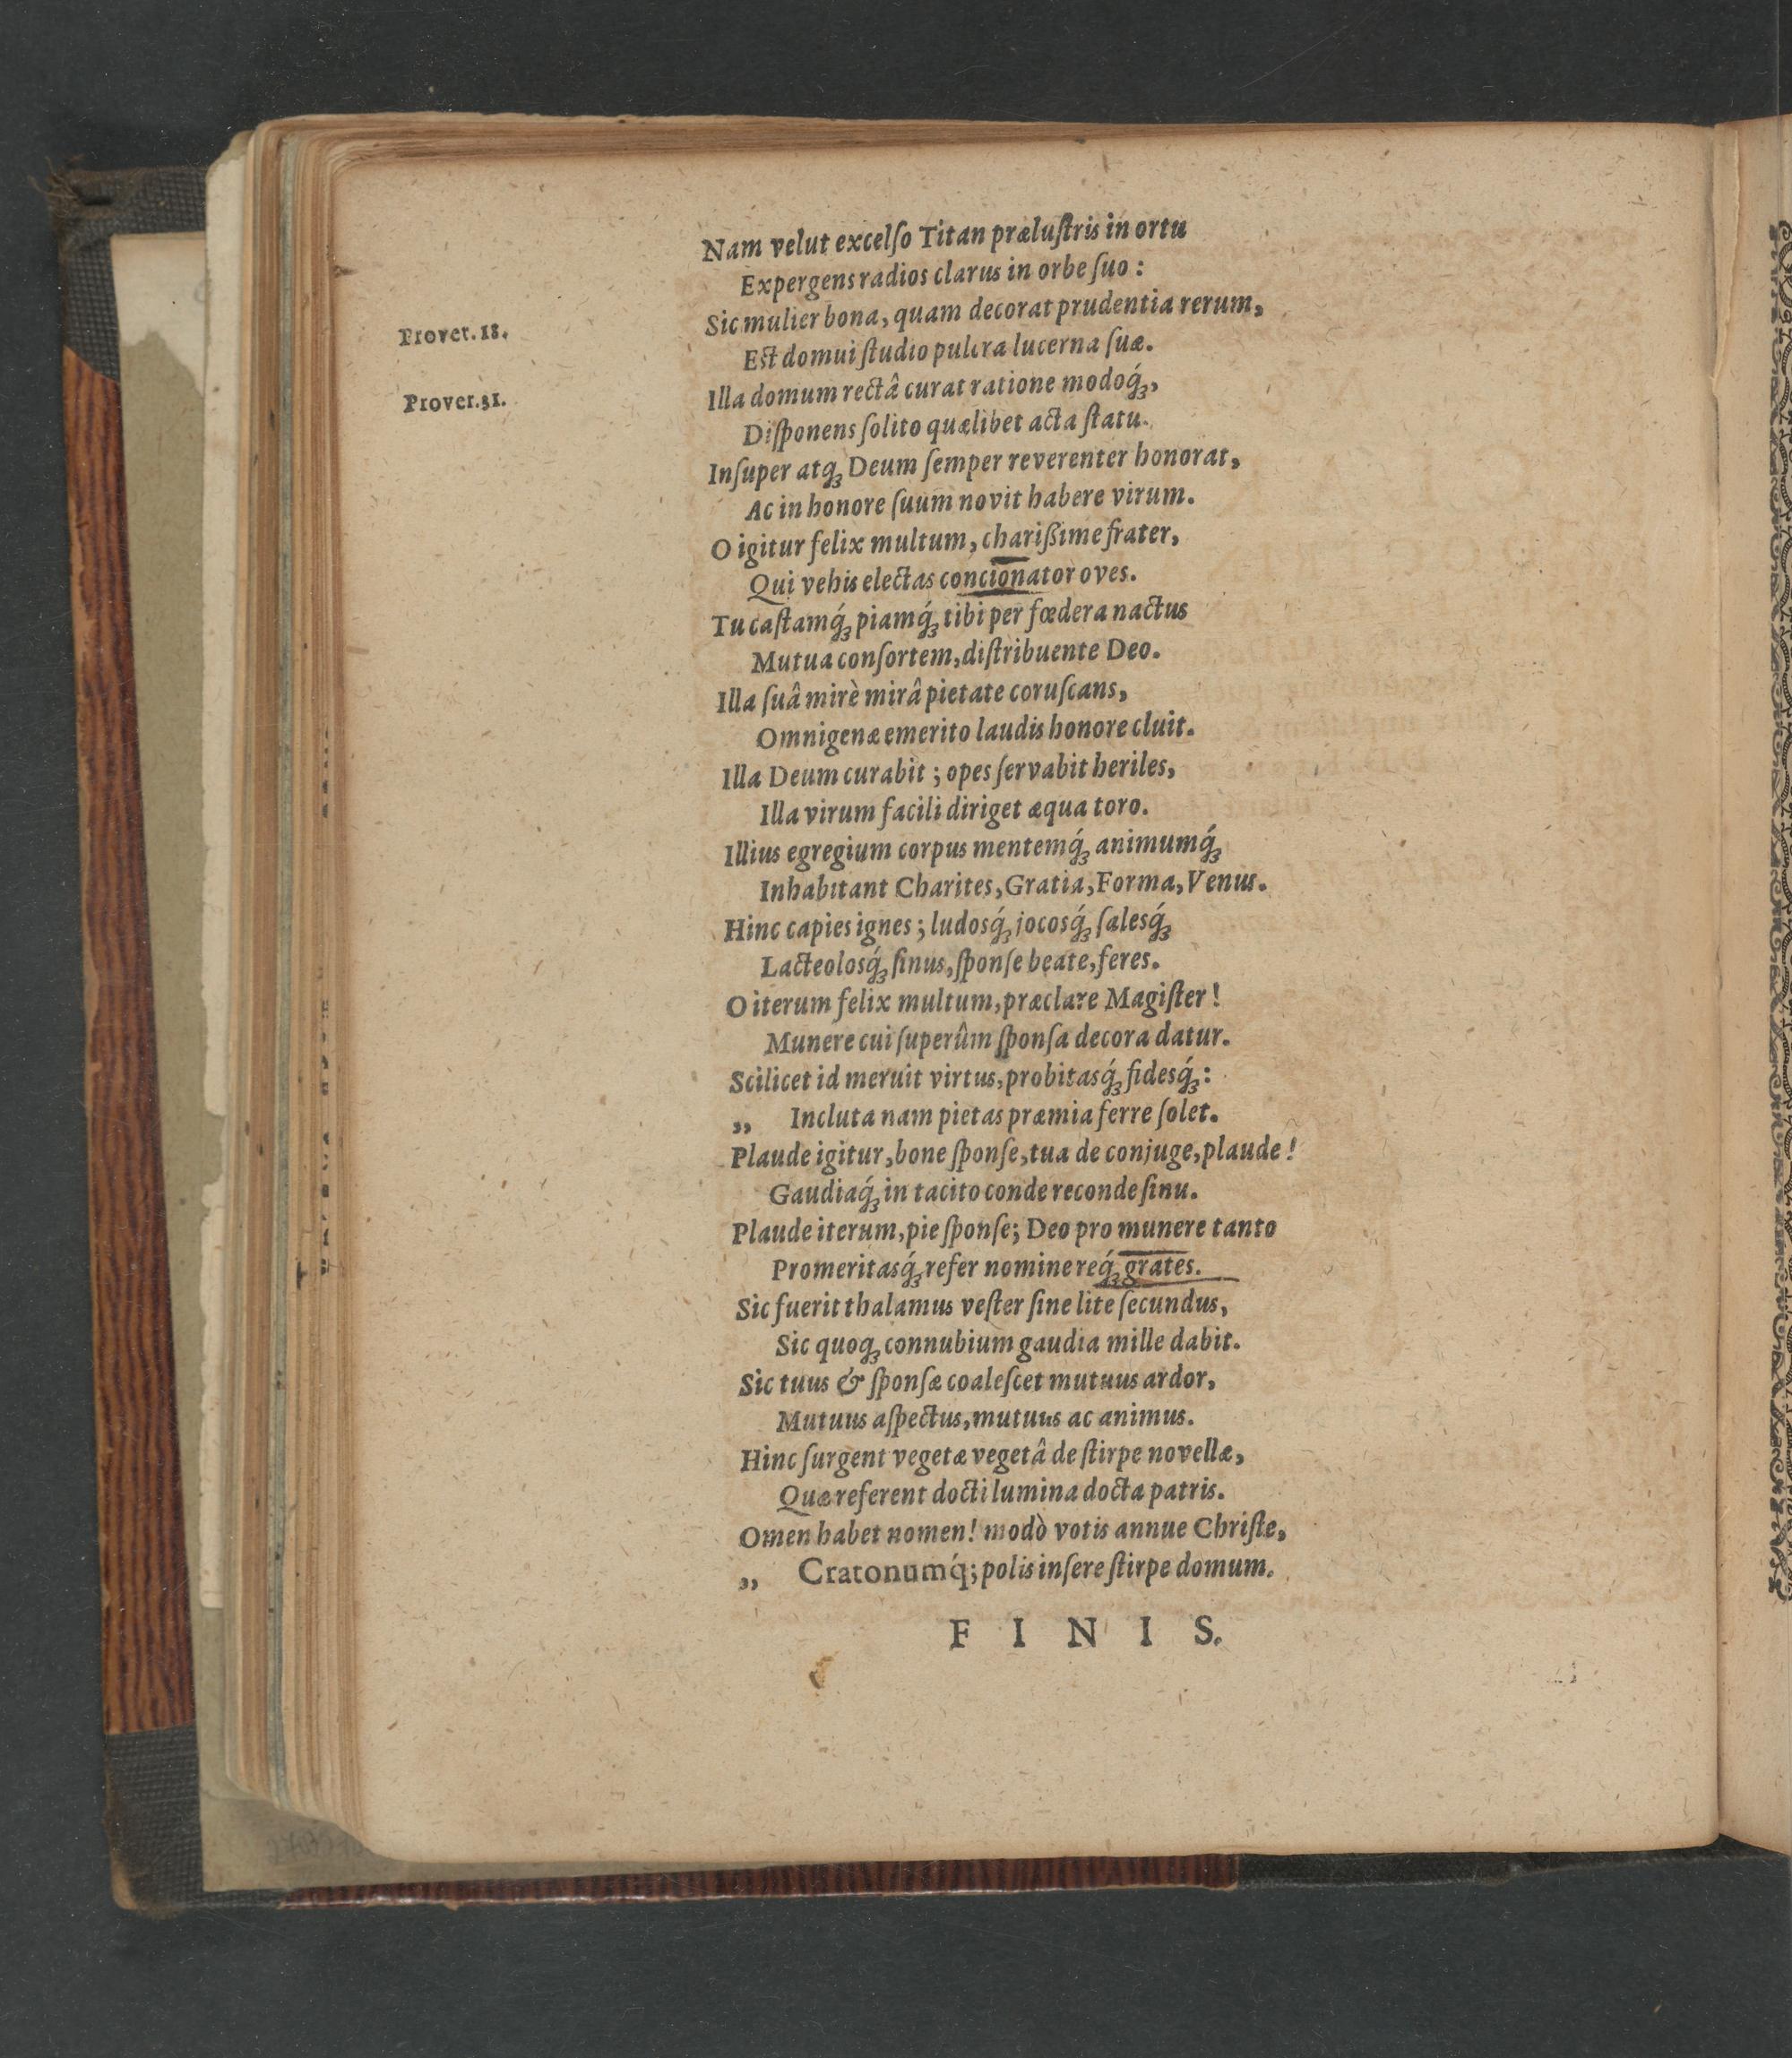 Nam velut excelſo Titan præluſtris in ortu
Expergens radios clarus in orbe ſuo :
Sic mulier bona, quam decorat prudentia rerum,
Provet. 18.
Est domui ſtudio pulcra lucerna ſuæ.
Illa domum rectâ curat ratione modoq́ꝫ,
Prover.31.
Diſponens ſolito quælibet acta ſtatu.
Inſuper atqꝫ Deum ſemper reverenter honorat,
Ac in honore ſuum novit habere virum.
O igitur felix multum, charißime frater,
Qui vehis electas concionator oves.
Tu caſtamq́ꝫ piamq́ꝫ tibi per fœdera nactus
Mutua conſortem, diſtribuente Deo.
Illa ſuâ mirè mirâ pietate coruſcans,
Omnigenæ emerito laudis honore cluit.
Illa Deum curabit ; opes ſervabit heriles,
Illa virum facili diriget æqua toro.
Illius egregium corpus mentemq́ꝫ animumq́ꝫ
Inhabitant Charites, Gratia, Forma, Venus.
Hinc capies ignes ; ludosq́ꝫ jocosq́ꝫ ſalesq́ꝫ
Lacteolosq́ꝫ ſinus, ſponſe beate, feres.
O iterum felix multum, præclare Magiſter !
Munere cui ſuperûm ſponſa decora datur.
Scilicet id meruit virtus, probitasq́ꝫ fidesq́ꝫ :
„ Incluta nam pietas præmia ferre ſolet.
Plaude igitur, bone ſponſe, tua de conjuge, plaude !
Gaudiaq́ꝫ in tacito conde reconde ſinu.
Plaude iterum, pie ſponſe; Deo pro munere tanto
Promeritasq́ꝫ refer nomine req́ꝫ grates.
Sic fuerit thalamus veſter ſine lite ſecundus,
Sic quoqꝫ connubium gaudia mille dabit.
Sic tuus & ſponſæ coaleſcet mutuus ardor,
Mutuus aſpectus, mutuus ac animus.
Hinc ſurgent vegetæ vegetâ de ſtirpe novellæ,
Quæ referent docti lumina docta patris.
Omen habet nomen! modò votis annue Chriſte,
„ Cratonumq́; polis inſere ſtirpe domum.
F I N I S.